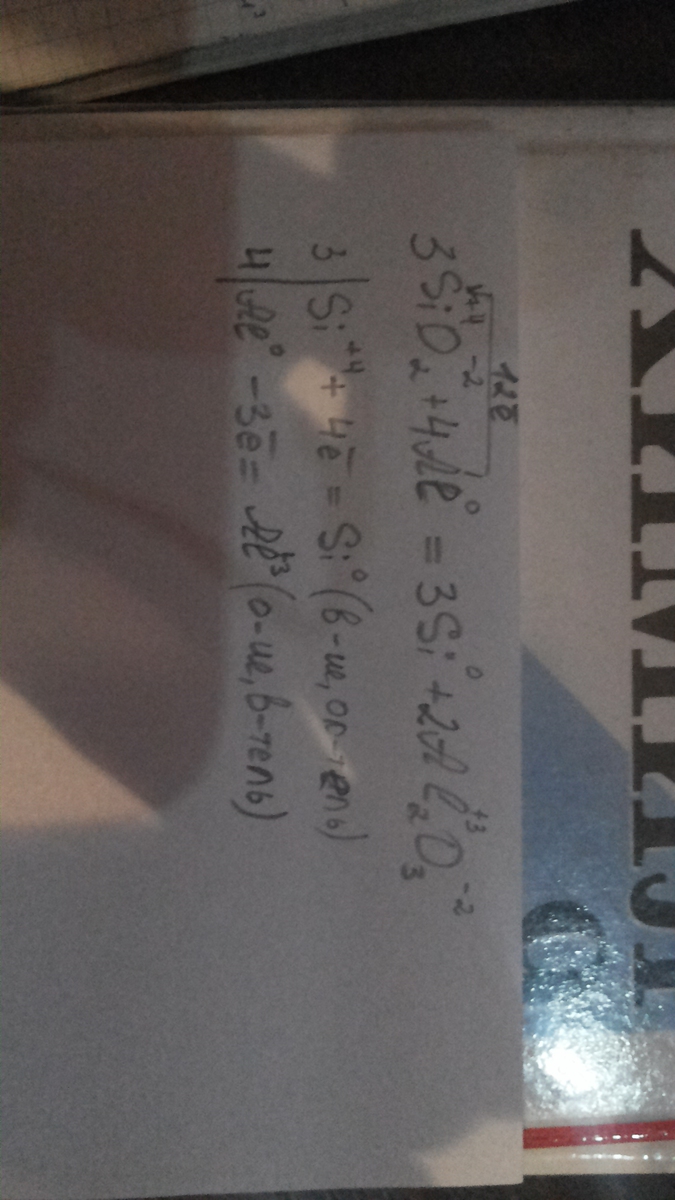 ХИМИЯ
12ē
3Si⁺⁴O₂⁻² + 4Al⁰ = 3Si⁰ + 2Al₂⁺³O₃⁻²
3 | Si⁺⁴ + 4ē = Si⁰ (в-ие, ок-тель)
4 | Al⁰ - 3ē = Al⁺³ (о-ие, в-тель)